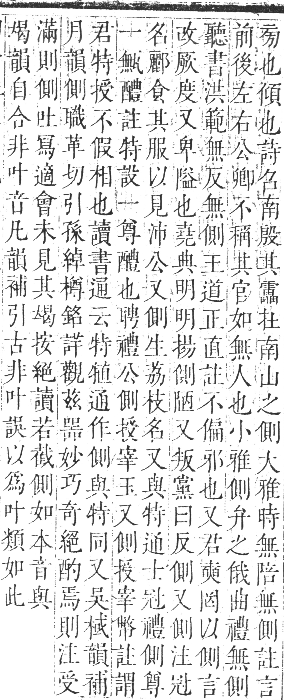 旁也傾也詩召南殷其靁在南山之側大雅時無陪無側註言
前後左右公卿不稱其官如無人也小雅側弁之俄曲禮無側
聽書洪範無反無側王道正直註不偏邪也又君奭罔以側言
改厥度又卑隘也堯典明明揚側陋又叛黨曰反側又側注冠
名酈食其服以見沛公又側生荔枝名又與特通士冠禮側尊
一甒醴註特設一尊醴也聘禮公側授宰玉又側授宰幣註謂
君特授不假相也讀書通云特犆通作側與特同又吳棫韻補
月韻側職革切引孫綽樽銘詳觀茲器妙巧奇絕酌焉則注受
滿則側吐寫適會未見其竭按絕讀若截側如本音與
竭韻自合非叶音凡韻補引古非叶誤以爲叶類如此